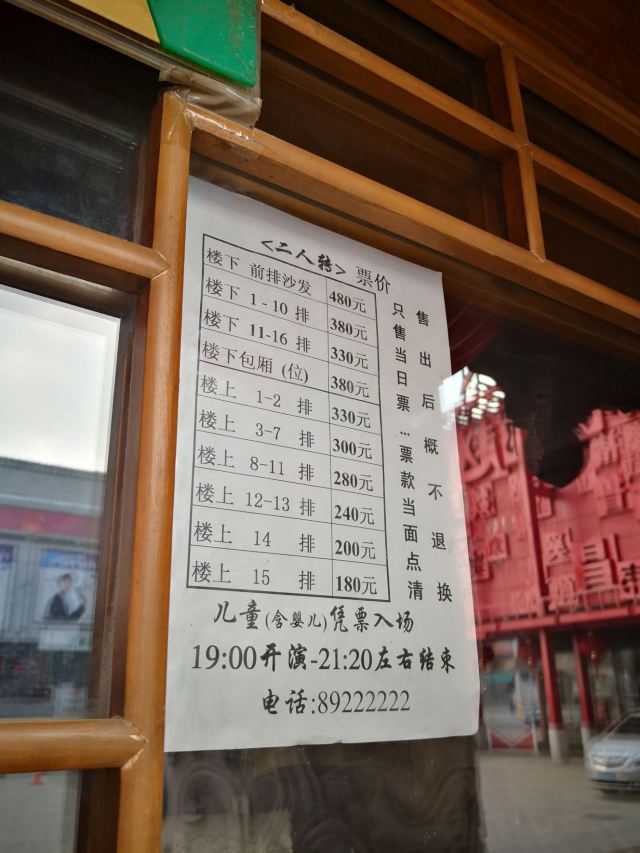 <二人转>票价
楼下 前排沙发 480元
楼下 1-10 排 380元
楼下 11-16 排 330元
楼下包厢 (位) 380元
楼上 1-2 排 330元
楼上 3-7 排 300元
楼上 8-11 排 280元
楼上 12-13 排 240元
楼上 14 排 200元
楼上 15 排 180元
只售当日票…票款当面点清
售出后概不退换
儿童(含婴儿)凭票入场
19:00开演-21:20左右结束
电话:89222222